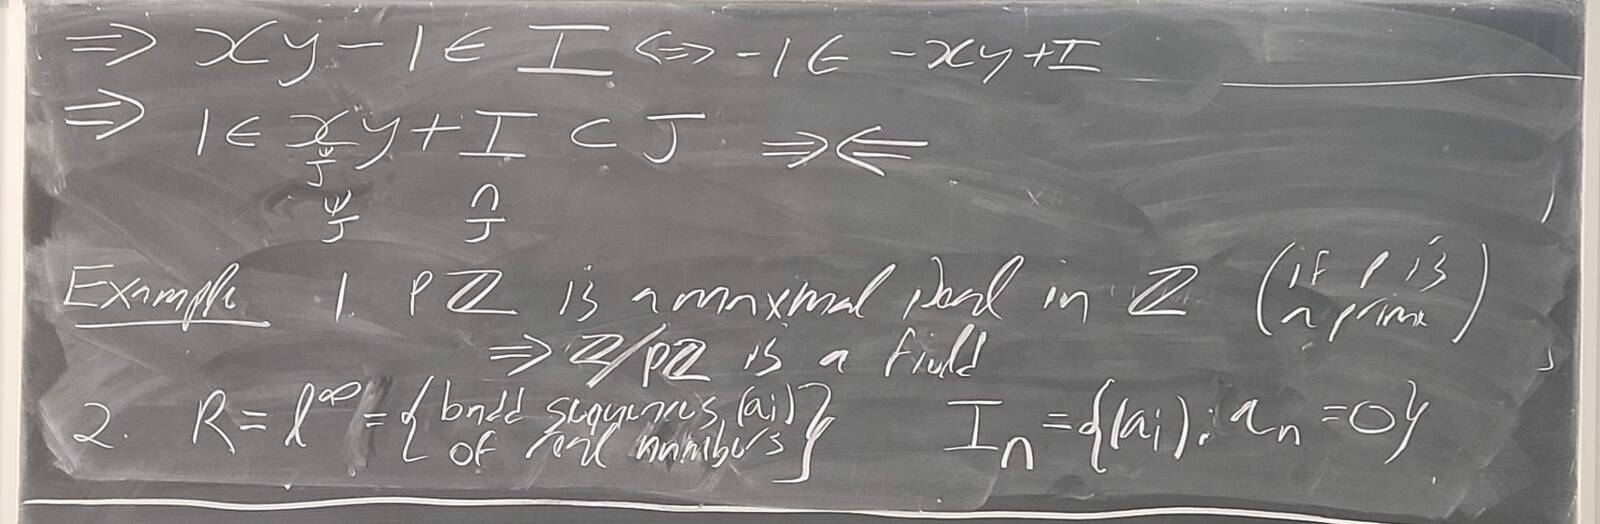 ⇒ xy - 1 ∈ I ⇔ -1 ∈ -xy + I
⇒ 1 ∈ xy + I ⊂ J ⇒⇐
Ψ ∩
J J
Ψ
J
Example 1. pZ is a maximal ideal in Z (if p is a prime)
⇒ Z/pZ is a field
2. R = l^∞ = { bndd sequences (ai) of real numbers } I_n = {(ai): a_n = 0}